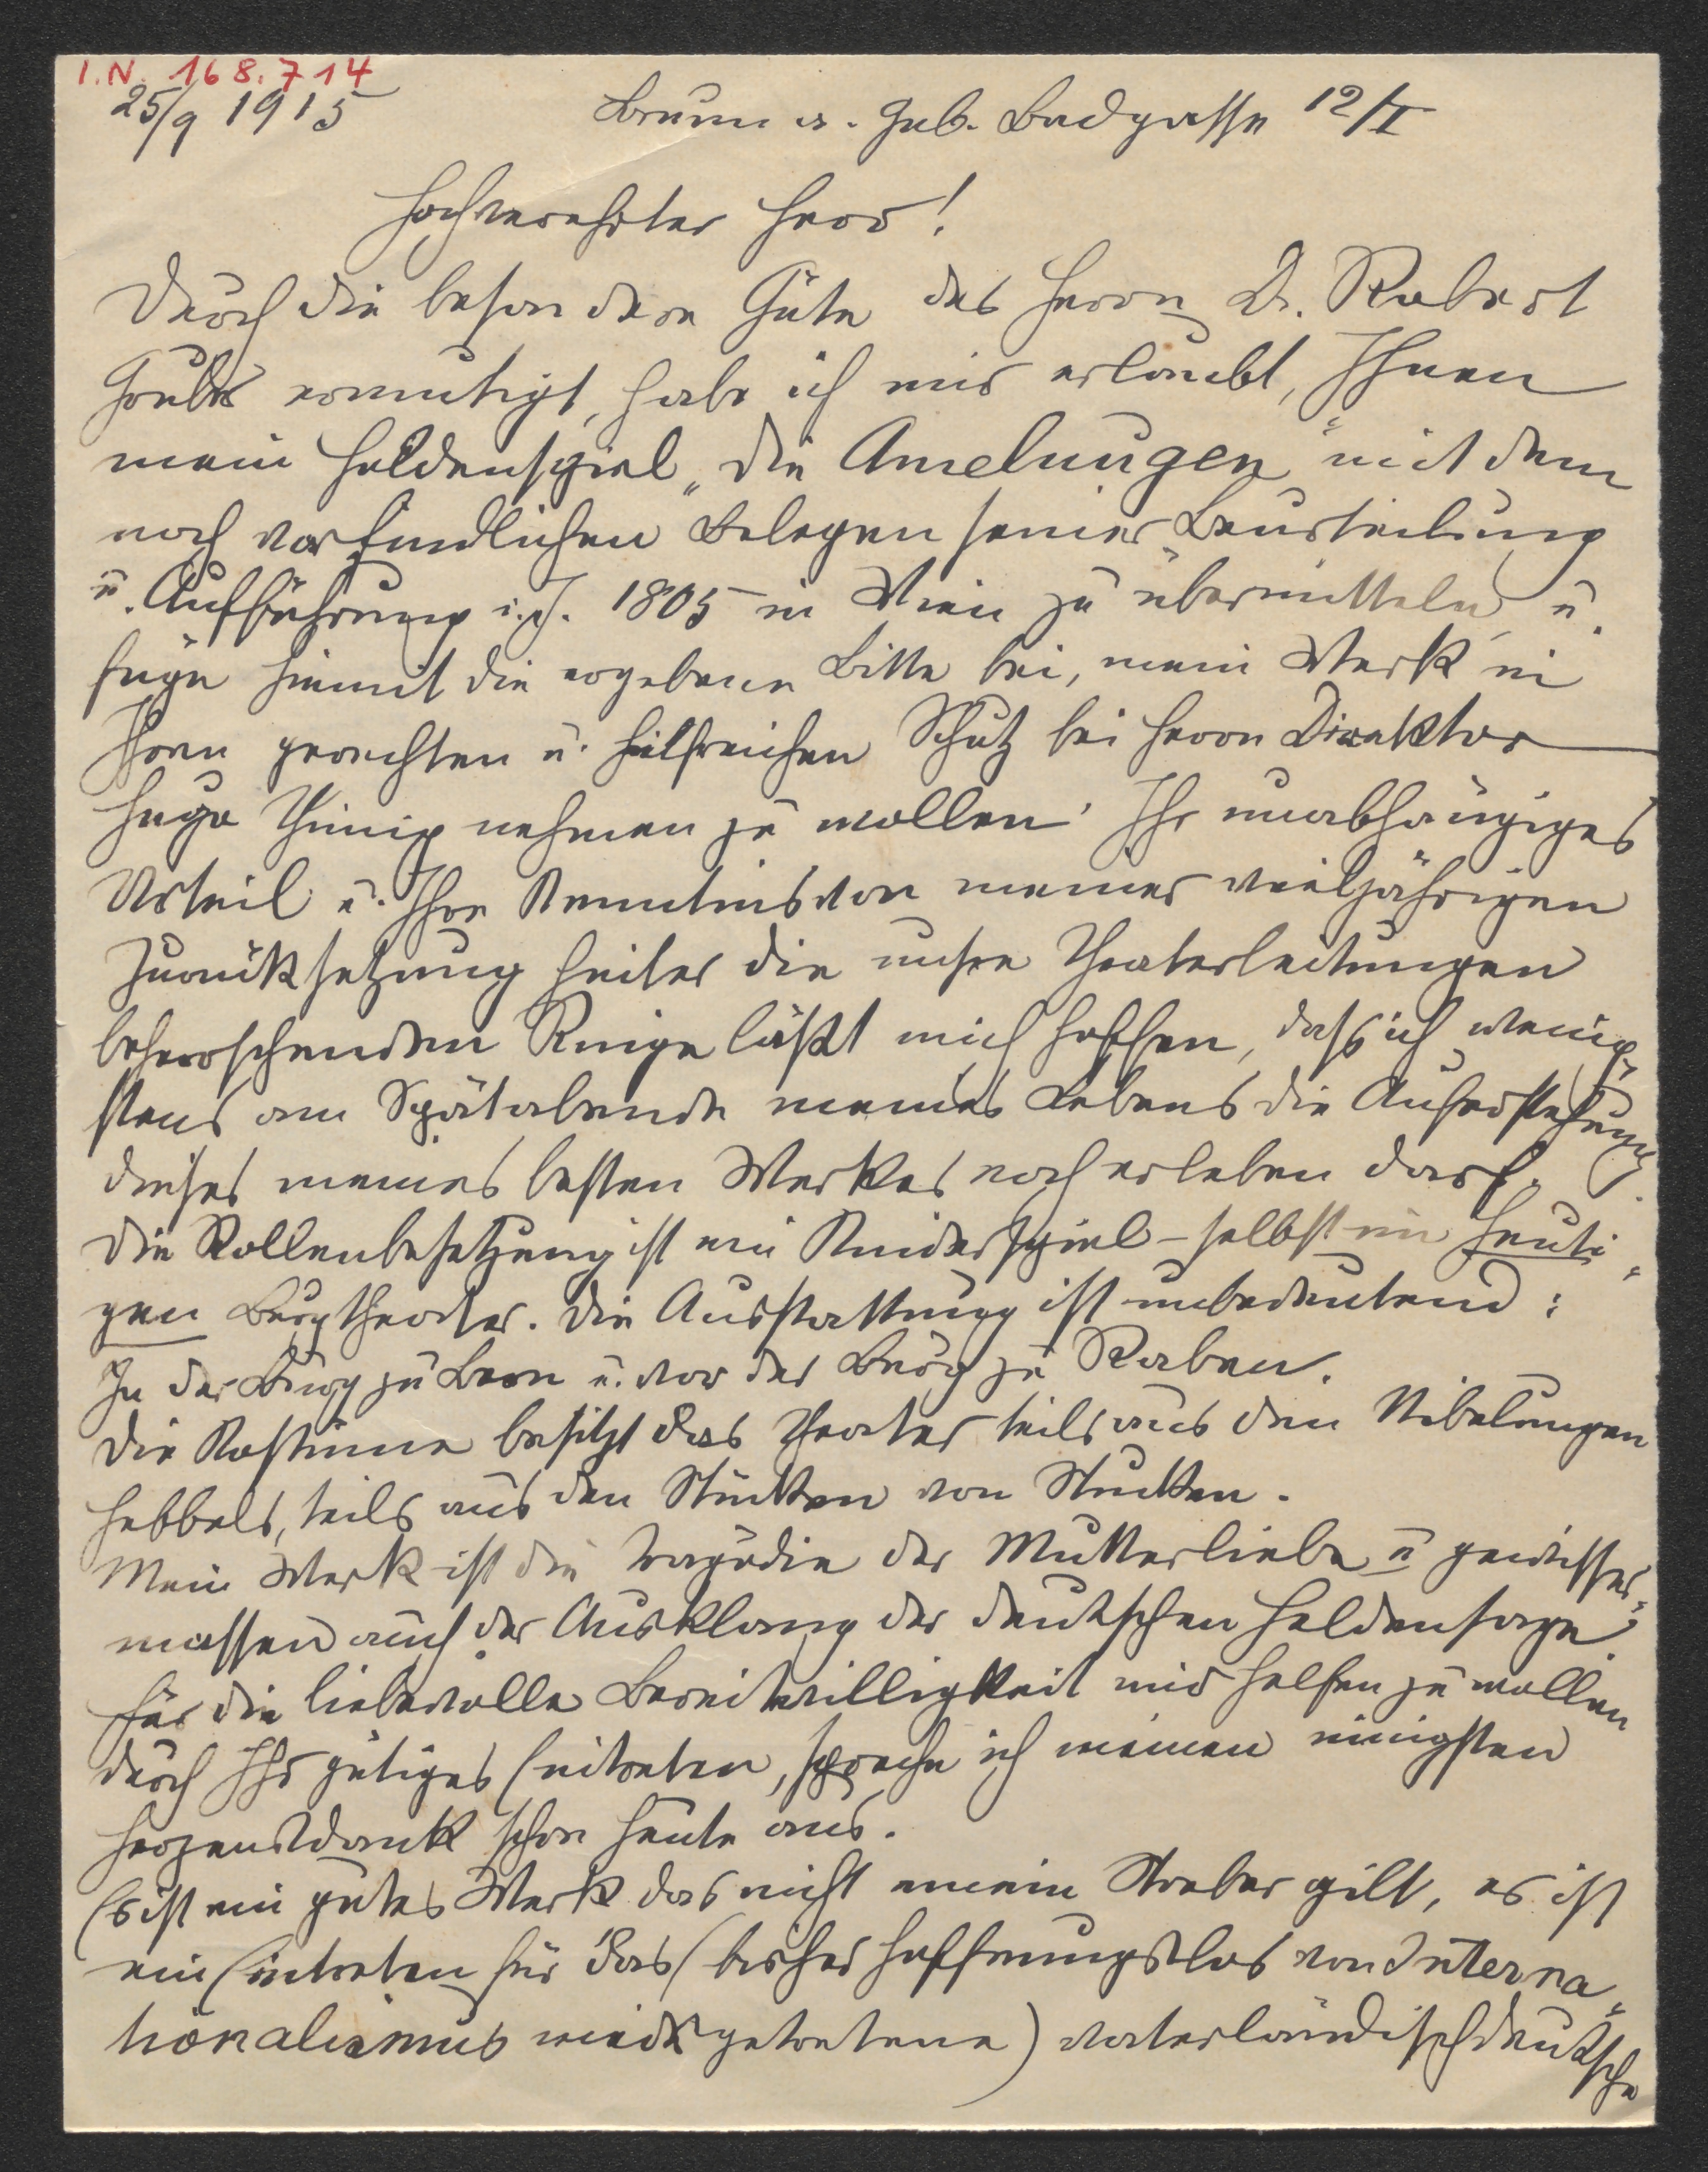 I.N. 168.714
25/9 1915 Brunn a. Geb. Badgasse 12/I
Hochverehrter Herr!
Durch die besondere Güte des Herrn Dr. Robert
ermutigt, habe ich mir erlaubt, Ihnen
mein Heldenspiel „Die Amelungen“ mit den
noch vorfindlichen Belegen seiner Beurteilung
u. Aufführung i. J. 1805 in Wien zu übermitteln u.
füge hiemit die ergebene Bitte bei, mein Werk in
Ihren gerechten u. hilfreichen Schutz bei Herrn Direktor
Hugo Thimig nehmen zu wollen. Ihr unabhängiges
Urteil u. Ihre Kenntnis von meiner vieljährigen
Zurücksetzung seiter die unsre Theaterleitungen
beherrschenden Ringe läßt mich hoffen, daß ich wenig-
stens am Spätabende meines Lebens die Auferstehung
dieses meines besten Werkes noch erleben darf.
Die Rollenbesetzung ist ein Kinderspiel – selbst im heuti-
gen Burgtheater. Die Ausstattung ist unbedeutend:
In der Burg zu Bern u. vor der Burg zu Raben.
Die Kostüme besitzt das Theater teils aus den Nibelungen
Hebbels, teils aus den Stücken von Stucken.
Mein Werk ist die Tragödie der Mutterliebe u gewisser-
massen auch der Ausklang der deutschen Heldensage
Für die liebevolle Bereitwilligkeit mir helfen zu wollen
durch Ihr gütiges Eintreten, spreche ich meinen innigsten
Herzensdank schon heute aus.
Es ist ein gutes Werk das nicht einem Streber gilt, es ist
ein Eintreten für das (bisher hoffnungslos von Interna-
tionalismus niedergetretene) vaterländischdeutsche